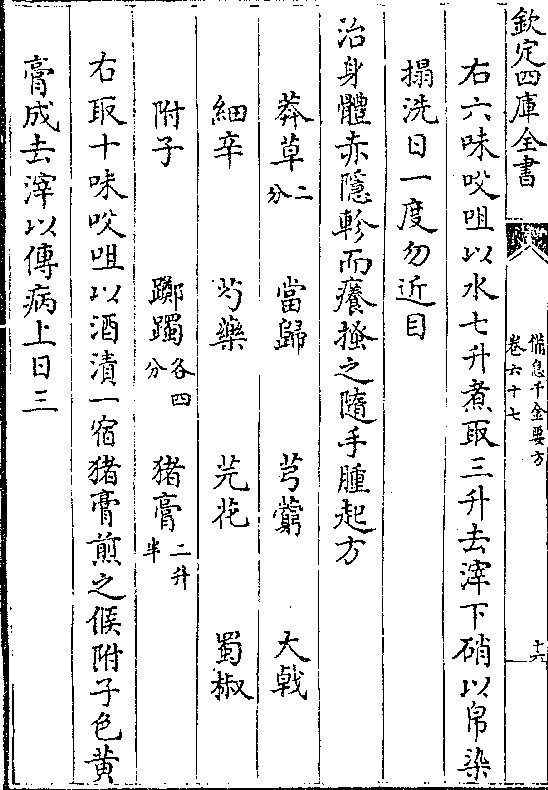 欽定四庫全書
備急千金要方
卷六十七
十六
右六味㕮咀以水七升煮取三升去滓下硝以帛染
搨洗日一度勿近目
治身體赤隱軫而癢搔之隨手腫起方
莽草二分 當歸 芎藭 大戟
細辛 芍藥 芫花 蜀椒
附子 躑躅各四分 猪膏二升半
右取十味㕮咀以酒漬一宿猪膏煎之候附子色黄
膏成去滓以傅病上日三